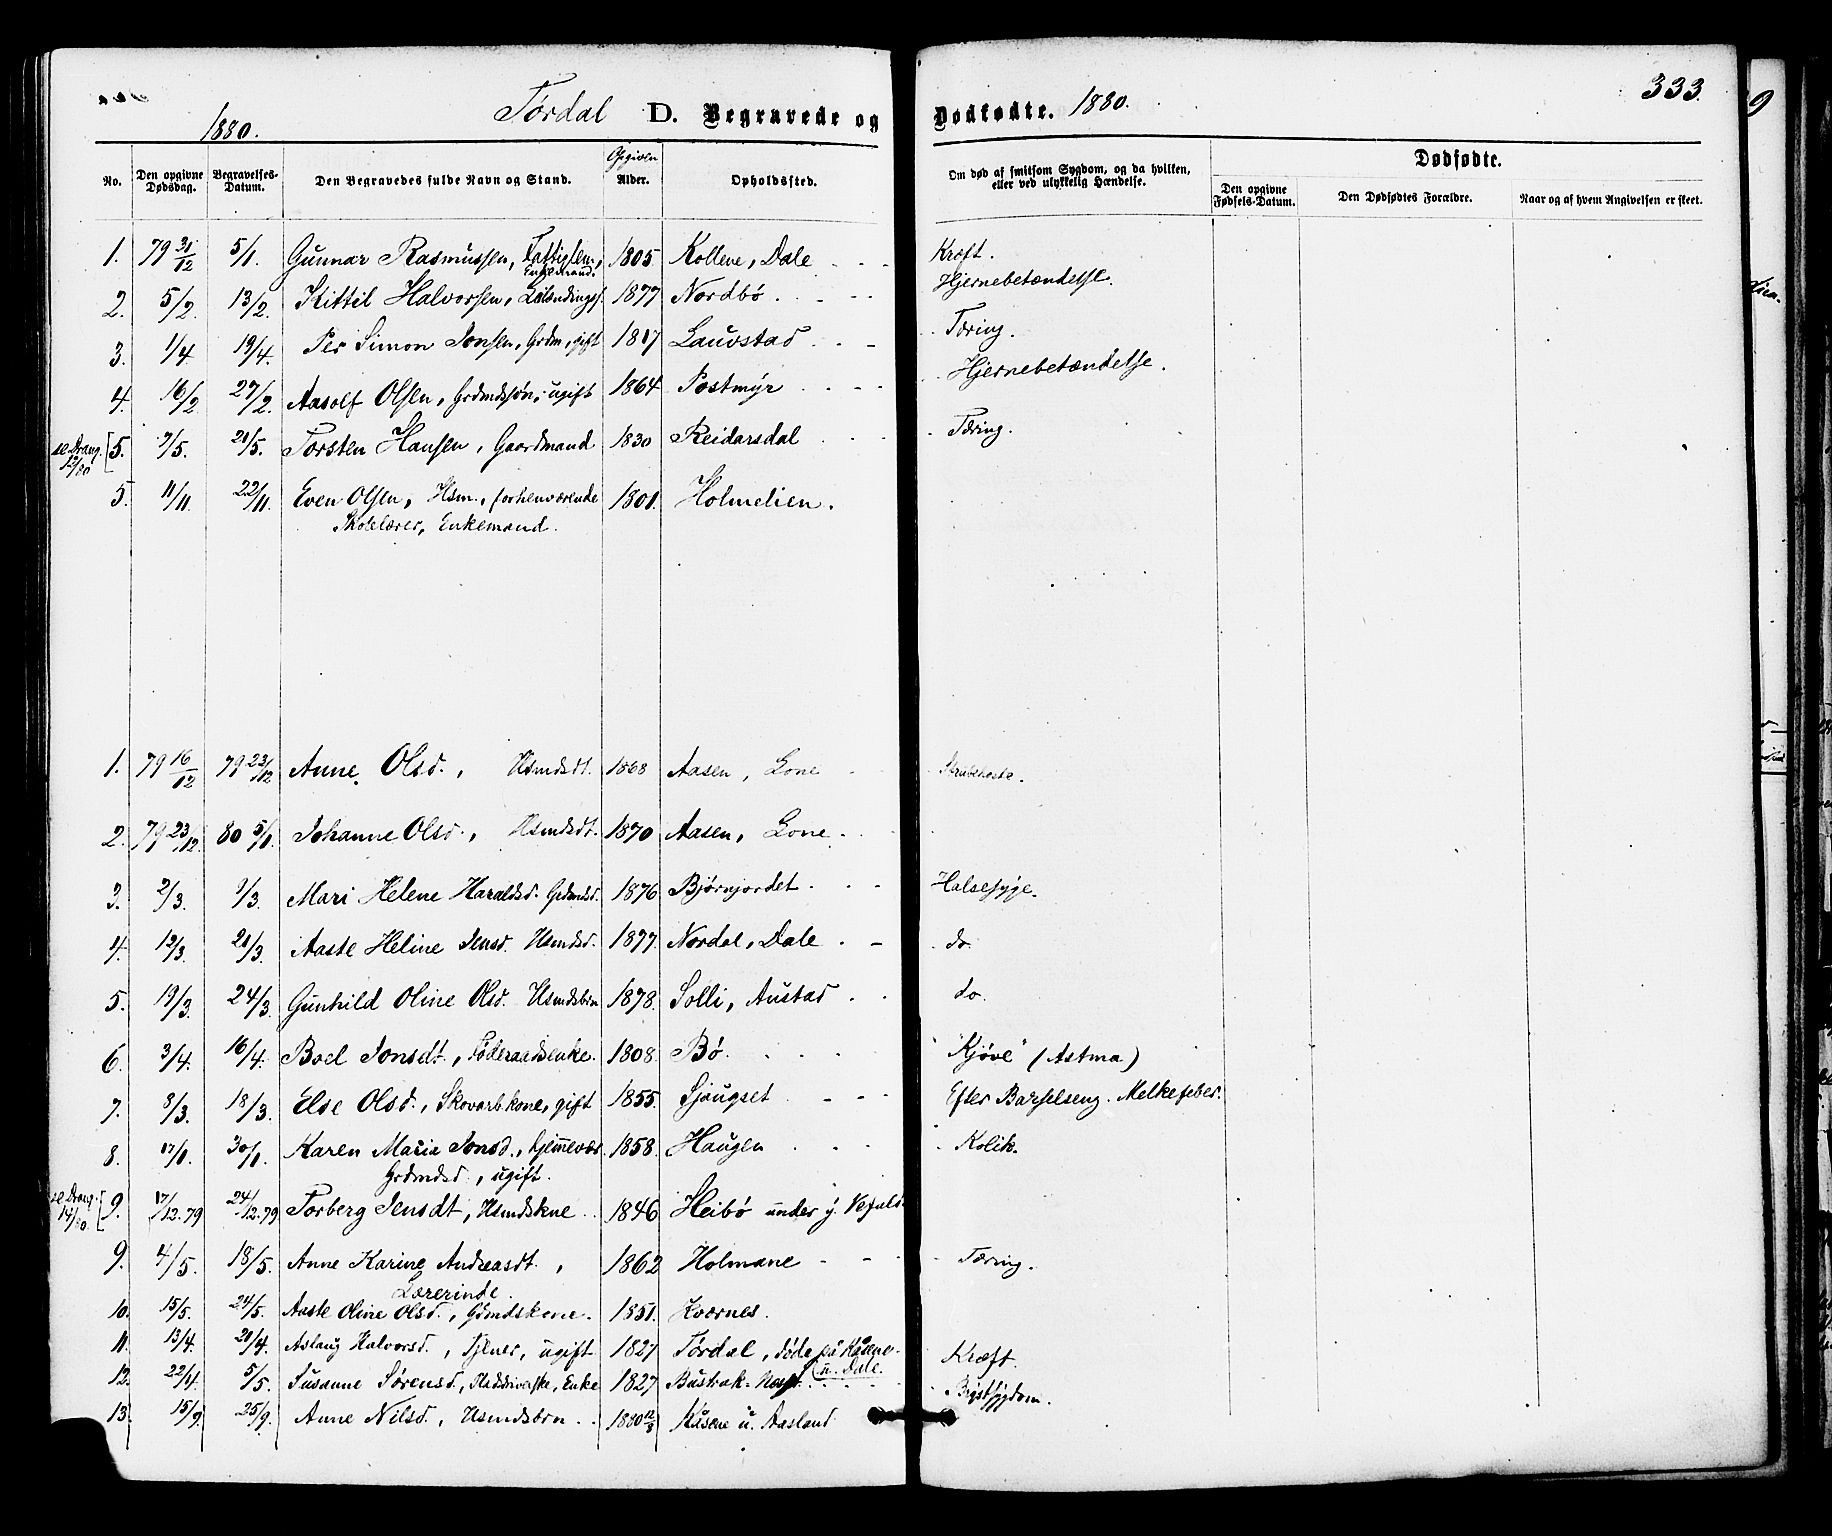 1880. Tørdal D. Begravede og Dødfødte. 1880. 333.
No. | Den opgivne Dødsdag. | Begravelses-Datum. | Den Begravedes fulde Navn og Stand. | Opgiven Alder. | Opholdssted. | Om død af smitsom Sygdom, og da hvilken, eller ved ulykkelig Hændelse. | Dødfødte. Den opgivne Fødsels-Datum. | Den Dødfødtes Forældre. | Naar og af hvem Angivelsen er skeet.
1. 79 31/12 5/1. Gunnar Rasmussen, Fattiglem, Enkemand. 1805 Kollene, Dale Kræft.
2. 5/2. 13/2. Kittil Halvorsen, 1877 Nordbø. Hjernebetændelse.
3. 1/4 19/4. Per Simon Jonsen, Grdm, gift 1817 Lauvstad Tæring.
4. 16/2 27/2. Aasolf Olsen, Grdmdssøn, ugift 1864 Postmyr Hjernebetændelse.
se Drang. 12/80 [5. 7/5. 21/5. Torsten Hansen, Gaardmand 1830 Reidarsdal Tæring.
5. 11/11. 22/11. Even Olsen, Hsm., forhenværende 1801. Holmelien.
Skolelærer, Enkemand.
1. 79 16/12 79 23/12 Anne Olsd., Hsmdsdt. 1868 Aasen, Lone Strubehoste.
2. 79 23/12. 80 5/1. Johanne Olsd., Hsmdsdt. 1870 Aasen, Lone.
3. 2/3. 9/3. Mari Helene Haraldsd. Grdmdsd. 1876 Bjørnjordet Halsesyge.
4. 12/3. 21/3. Aaste Heline Jensd. Hsmdsd. 1877. Nordal, Dale do.
5. 19/3. 24/3. Gunhild Oline Olsd. Hsmdsbrn 1878. Solli, Austad do.
6. 3/4. 16/4. Boel Jonsdt., Føderaadsenke. 1808. Bø. "Kjøve" (Astma)
7. 8/3. 18/3. Else Olsd., Skovarb.kone, gift 1855. Sjaugset Efter Barselseng. Melkefeber.
8. 17/1. 30/1. Karen Maria Jonsd., hjemmevær. 1858. Haugen Kolik.
Grdmdsd., ugift.
se Drang. 14/80 [9. 17/12.79 24/12.79 Torberg Jensdt, Hsmdskne 1846 Heibø under
9. 4/5. 18/5. Anne Karine Andreasdt., 1862 Holmane Tæring.
Lærerinde.
10. 15/5. 24/5. Aaste Oline Olsd., Gdmdskone. 1851. Kværnes.
11. 13/4. 21/4. Aslaug Halvorsd., Tjener, ugift 1827 Tørdal, døde på Kåsene
12. 22/4. 5/5. Susanne Sørensd., Enke 1827 u. Dale. Kræft.
13. 15/9. 25/9. Anne Nilsd., Hsmdsbrn 1880 12/8 Kåsene u. Aasland Brystsygdom.